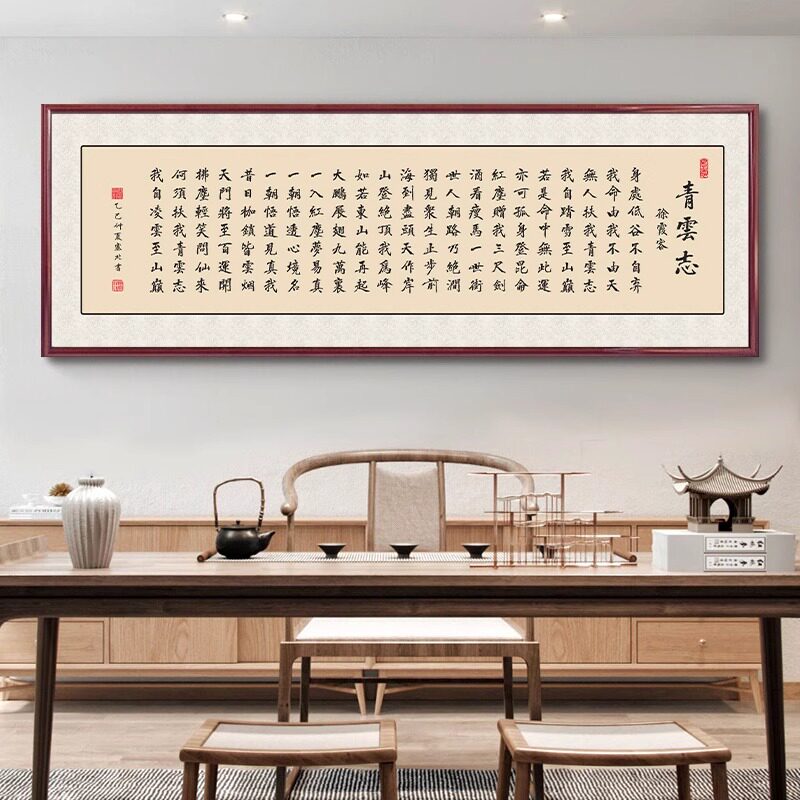 青雲志
徐霞客
身處低谷不自弃
我命由我不由天
無人扶我青雲志
我自踏雪至山巔
若是命中無此運
亦可孤身登昆侖
紅塵贈我三尺劍
酒着瘦馬一世
世人朝路乃絕澗
獨見衆生止步前
海到盡頭天作岸
山登絕頂我爲峰
如若東山能再起
大鵬展翅九萬裏
一入紅塵夢易真
一朝悟透心境名
一朝悟道見真我
昔日枷鎖皆雲烟
天門將至百運開
拂塵輕笑問仙來
何須扶我青雲志
我自凌雲至山巔
乙巳仲夏寒北書